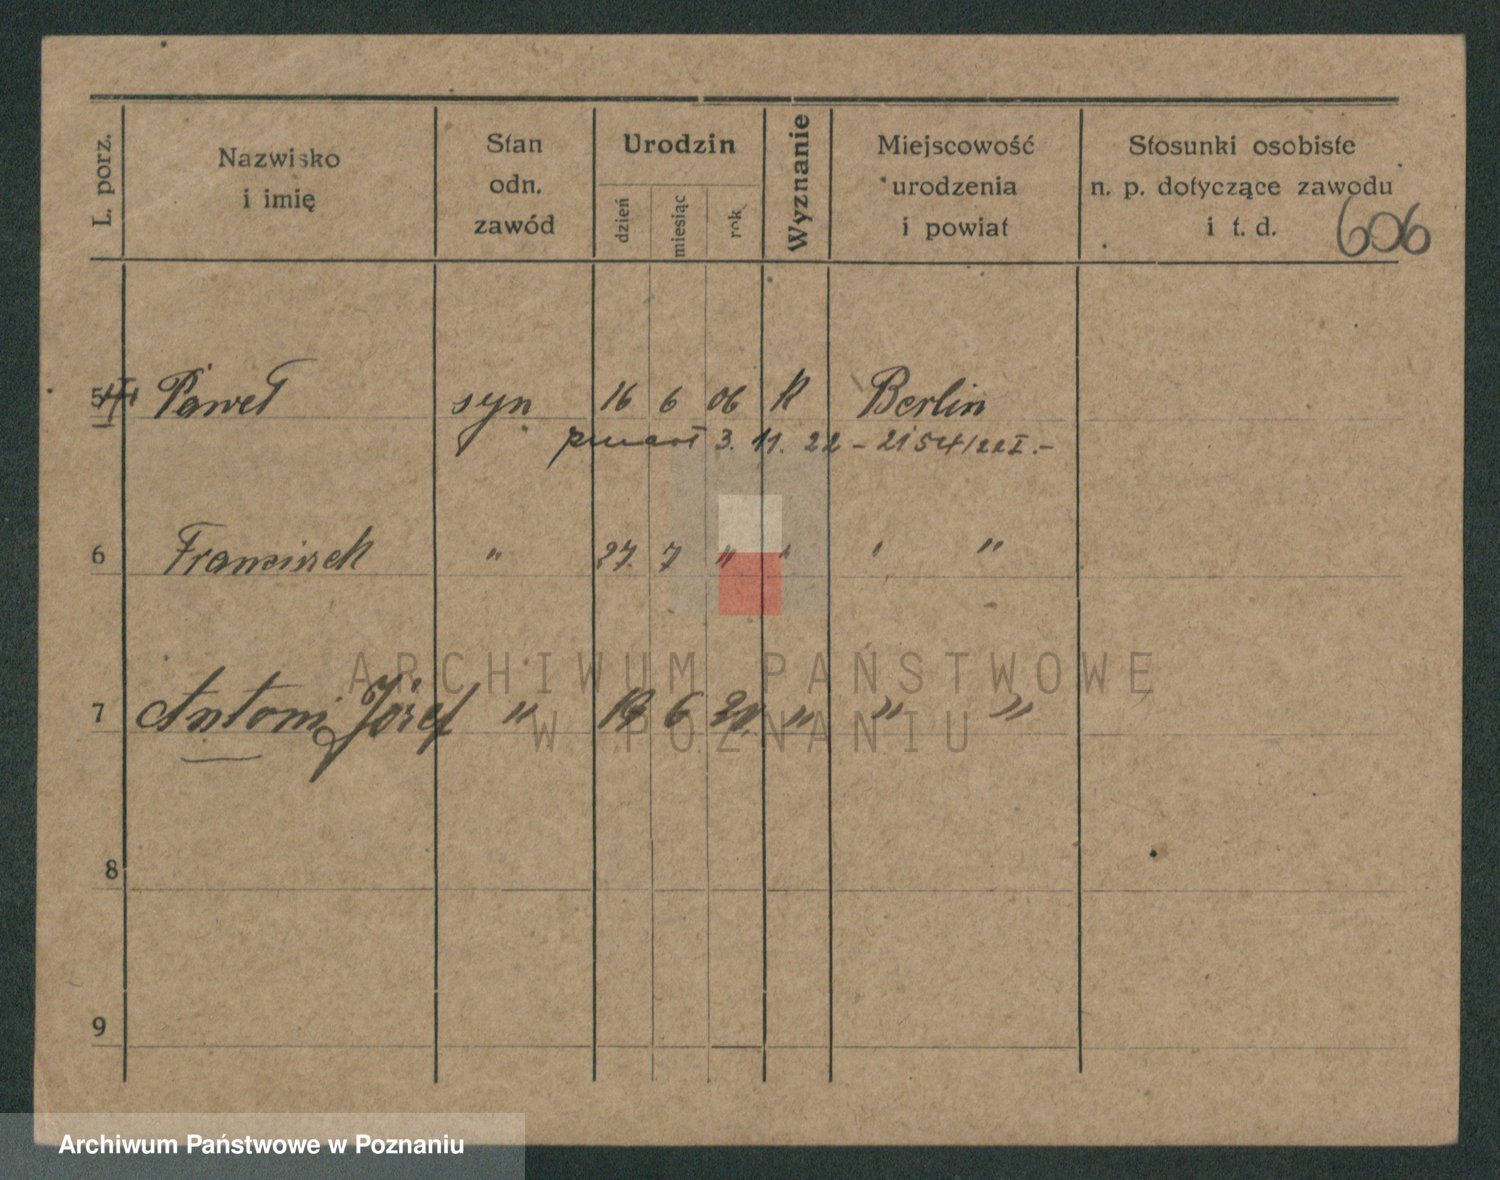 L. porz.
Nazwisko
i imię
Stan
odn.
zawód
Urodzin
dzień
miesiąc
rok
Wyznanie
Miejscowość
urodzenia
i powiat
Stosunki osobiste
n. p. dotyczące zawodu
i t. d.
606
5 Paweł syn 16 6 06 K Berlin
zmarł 3. 11. 22 – 2154/22 I. –
6 Franciszek " 27. 7 " " " "
7 Antoni Józef " 6 20. " " "
8
9
ARCHIWUM PAŃSTWOWE
W POZNANIU
Archiwum Państwowe w Poznaniu